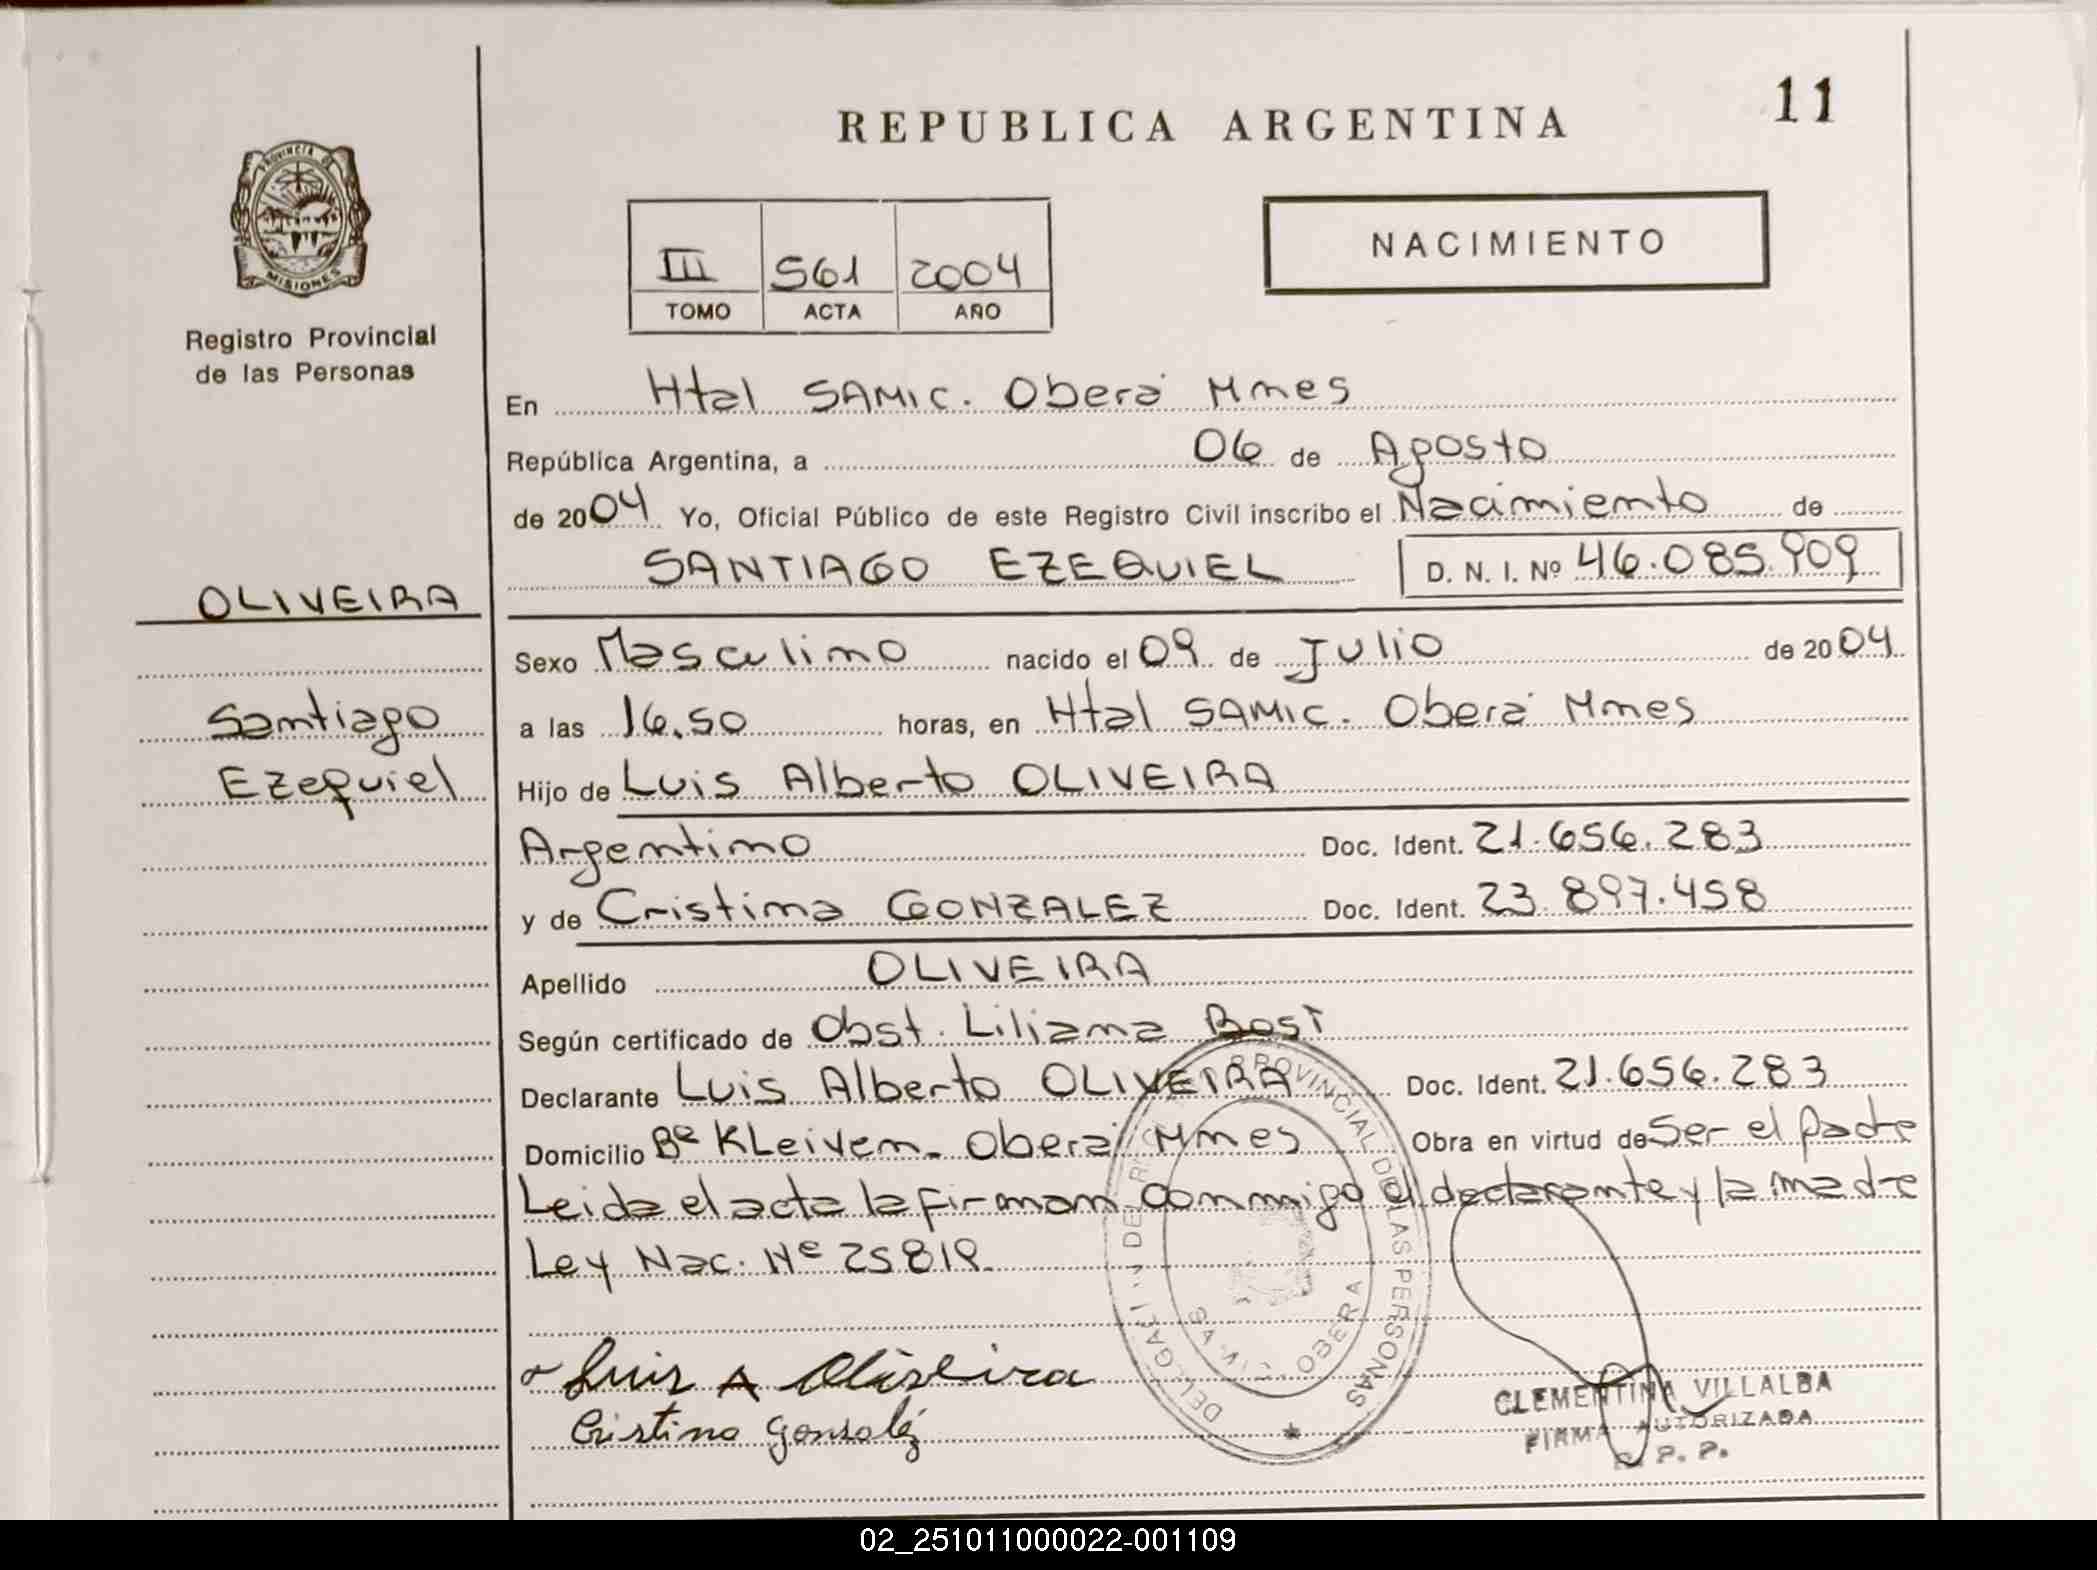 REPUBLICA ARGENTINA
11
PROVINCIA D
MISIONES
Registro Provincial
de las Personas
III 561 2004
TOMO ACTA AÑO
NACIMIENTO
En Htal SAMIC. Oberá Mnes
República Argentina, a 06 de Agosto
de 2004 Yo, Oficial Público de este Registro Civil inscribo el Nacimiento de
SANTIAGO EZEQUIEL D. N. I. Nº 46.085.909
OLIVEIRA
Santiago
Ezequiel
Sexo Masculino nacido el 09 de Julio de 2004
a las 16.50 horas, en Htal SAMIC. Oberá Mnes
Hijo de Luis Alberto OLIVEIRA
Argentino Doc. Ident. 21.656.283
y de Cristina GONZALEZ Doc. Ident. 23.897.458
Apellido OLIVEIRA
Según certificado de Obst. Liliana
Declarante Luis Alberto OLIVEIRA Doc. Ident. 21.656.283
Domicilio Bº KLeiven. Oberá Mnes Obra en virtud de Ser el padre
Leida el acta la firman conmigo el declarante y la madre
Ley Nac. Nº 25819.
Luis A Oliveira
Cristina Gonzaléz
PROVINCIAL DE LAS PERSONAS
OBERA
CLEMENTINA VILLALBA
FIRMA AUTORIZADA
R. P. P.
02_251011000022-001109